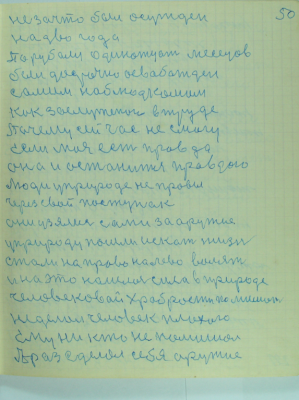 50
незачто был осужден
на два года
Парубали одинотцут месецов
был досрочно освабажден
самим наблюдкомом
как заслуженой втруде
Почему сичас не смогу
Если моя есть правда
она и останитя правдою
Люди уприроде не правы
через свой поступак
они узялис сами за аружие
уприроду пошли искат жизн
стали на право налево
и на это нашлас сила в природе
человековай храбрости
неделал человек плахого
Ему ни кто не помишал
раз сделал себя аружие